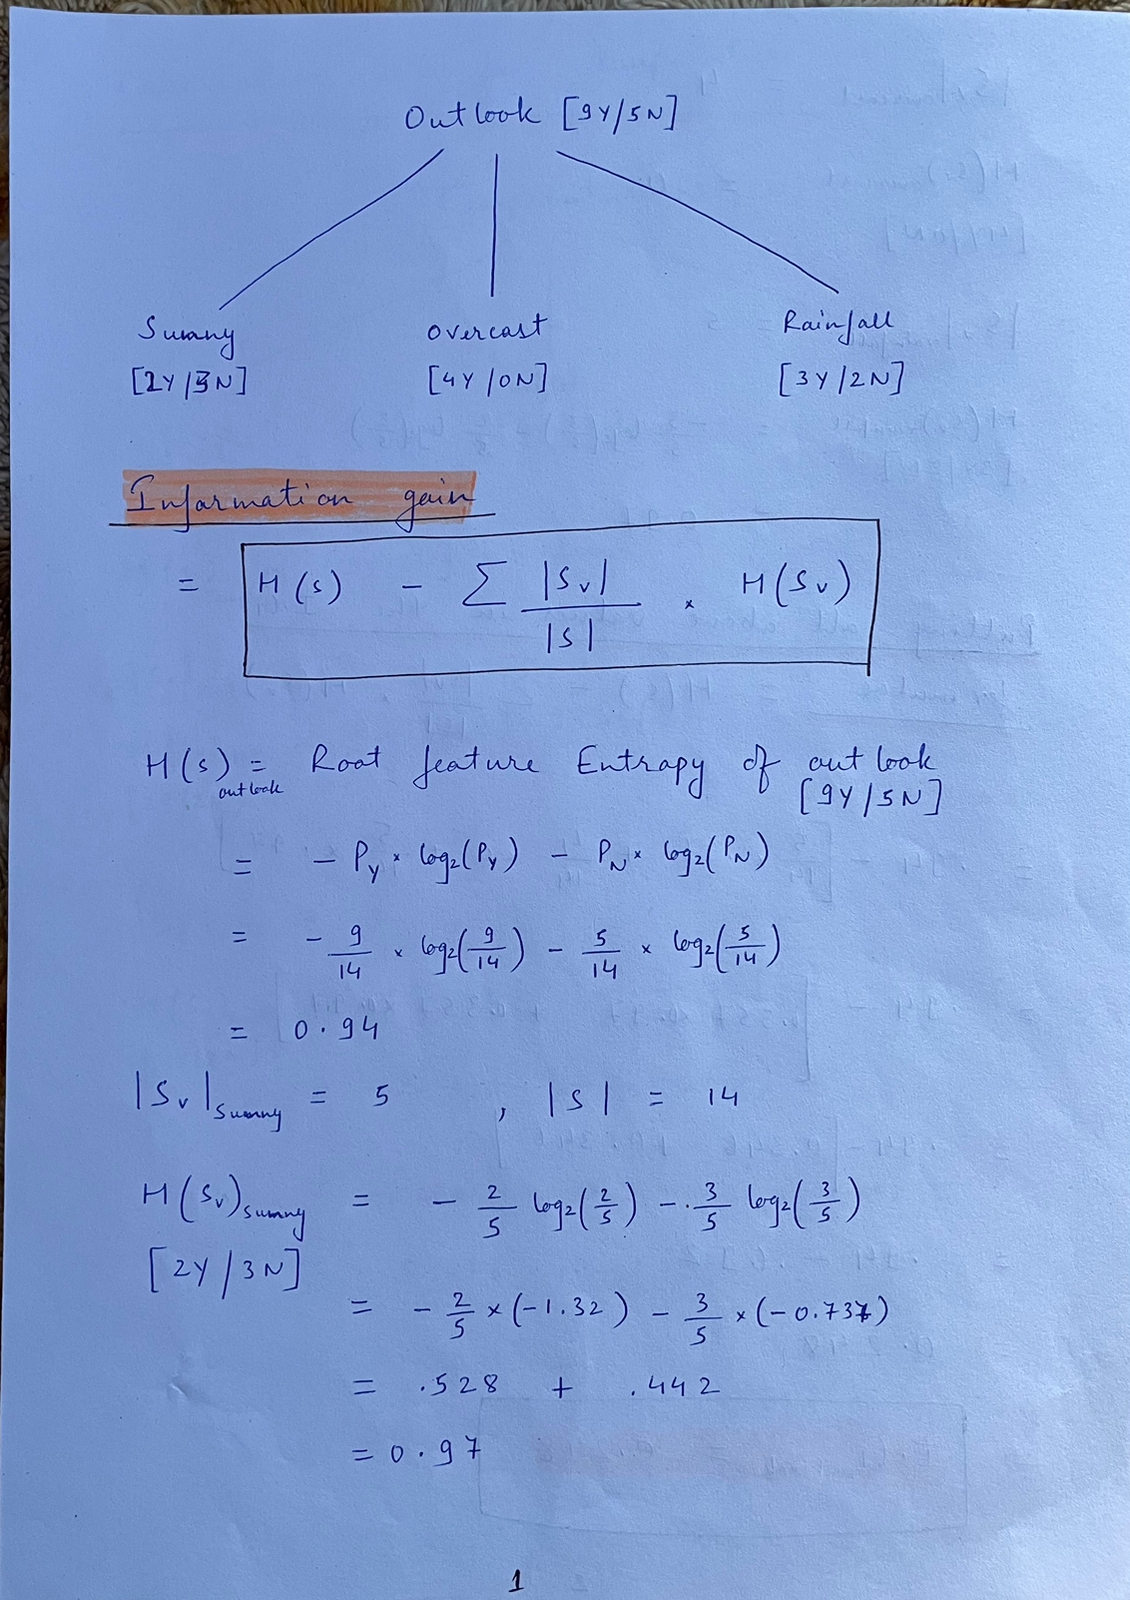 Outlook [9Y/5N]
Sunny overcast Rainfall
[2Y/3N] [4Y/0N] [3Y/2N]
Information gain
= H(s) - Σ |Sv|/|S| × H(Sv)
H(s)outlook = Root feature Entropy of outlook
[9Y/5N]
= - PY × log2(PY) - PN × log2(PN)
= - 9/14 × log2(9/14) - 5/14 × log2(5/14)
= 0.94
|Sv|Sunny = 5 , |S| = 14
H(Sv)Sunny = - 2/5 log2(2/5) - 3/5 log2(3/5)
[2Y/3N]
= - 2/5 × (-1.32) - 3/5 × (-0.737)
= .528 + .442
= 0.97
1